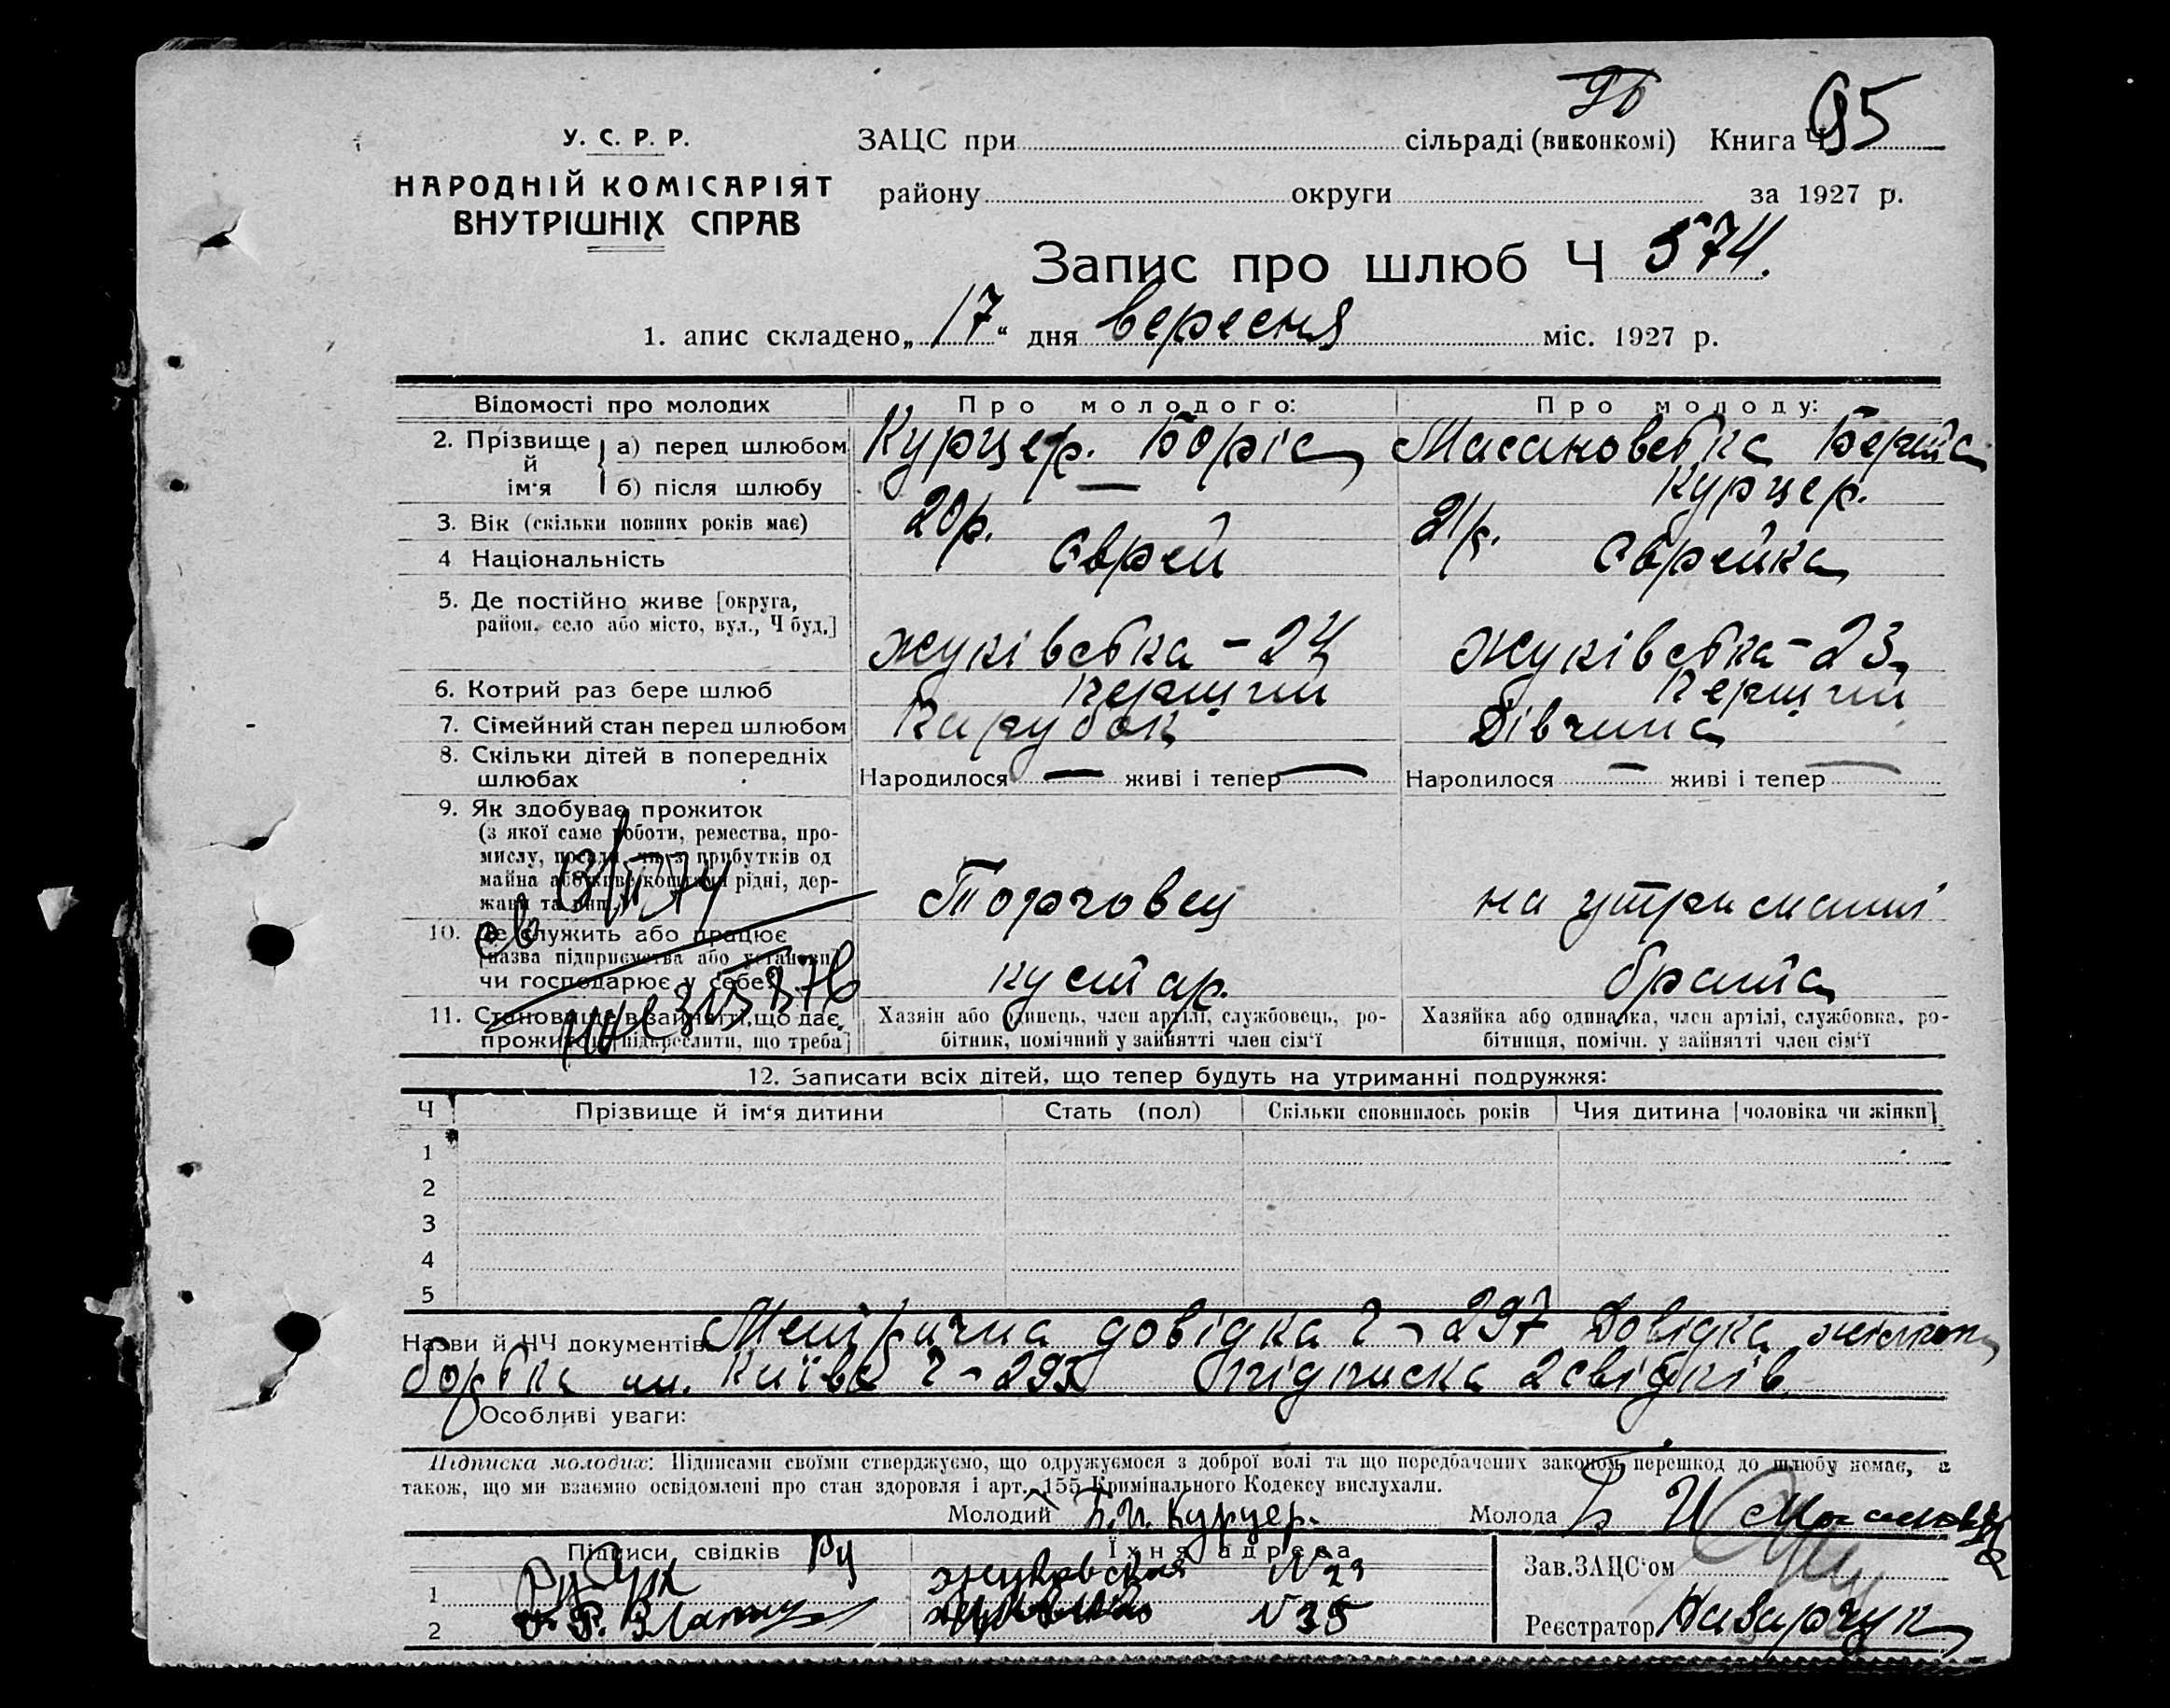 95
У. С. Р. Р.
НАРОДНІЙ КОМІСАРІЯТ
ВНУТРІШНІХ СПРАВ
ЗАЦС при сільраді (виконкомі) Книга Ч
району округи за 1927 р.
Запис про шлюб Ч 574.
1. апис складено „17“ дня вересня міс. 1927 р.
Відомості про молодих Про молодого: Про молоду:
2. Прізвище й ім‘я а) перед шлюбом Курцер. Боріс Масановська Берта
б) після шлюбу — Курцер.
3. Вік (скільки повних років має) 20р. 21р.
4 Національність Єврей Єврейка
5. Де постійно живе [округа,
район, село або місто, вул., Ч буд.] Жуківська - 24 Жуківська - 23
6. Котрий раз бере шлюб Перший Перший
7. Сімейний стан перед шлюбом Парубок Дівчина
8. Скільки дітей в попередніх
шлюбах Народилося — живі і тепер — Народилося — живі і тепер —
9. Як здобуває прожиток
(з якої саме роботи, ремества, про-
мислу, посади, чи з прибутків од
майна або живе коштами рідні, дер-
жави та инш. Торговец на утриманні
10. Де служить або працює
[назва підприємства або установи]
чи господарює у себе? кустар. брата
11. Становище в зайнятті, що дає
прожиток [підкреслити, що треба]
Хазяїн або одинець, член артілі, службовець, ро-
бітник, помічний у зайнятті член сім‘ї
Хазяйка або одиначка, член артілі, службовка, ро-
бітниця, помічн. у зайнятті член сім‘ї
12. Записати всіх дітей, що тепер будуть на утриманні подружжя:
Ч Прізвище й ім‘я дитини Стать (пол) Скільки сповнилось років Чия дитина [чоловіка чи жінки]
1
2
3
4
5
Назви й НЧ документів Метрична довідка Ч - 297 Довідка
м. Київа Ч - 295 підписка 2 свідків
Особливі уваги:
Підписка молодих: Підписами своїми стверджуємо, що одружуємося з доброї волі та що передбачених законом перешкод до шлюбу немає, а
також, що ми взаємно освідомлені про стан здоровля і арт. 155 Кримінального Кодексу вислухали.
Молодий Б. И. Курцер. Молода Б И
Підписи свідків Їхня адреса
1 Жуковская N 23
2 N 35
Зав.ЗАЦС‘ом
Реєстратор Назарчук